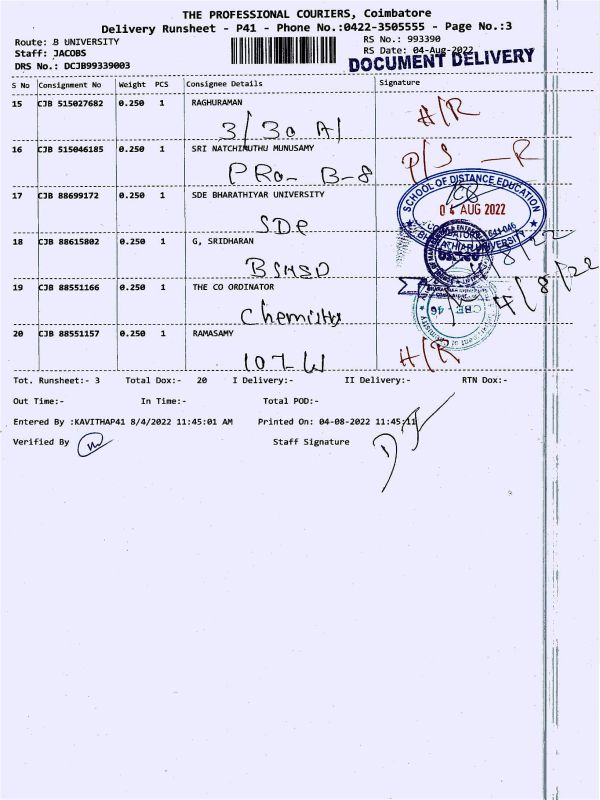 THE PROFESSIONAL COURIERS, Coimbatore
Delivery Runsheet - P41 - Phone No.:0422-3505555 - Page No.:3
Route: B UNIVERSITY RS No.: 993390
Staff: JACOBS RS Date: 04-Aug-2022
DRS No.: DCJB99339003 DOCUMENT DELIVERY
S No Consignment No Weight PCS Consignee Details Signature
15 CJB 515027682 0.250 1 RAGHURAMAN H/R
3/30 A/
16 CJB 515046185 0.250 1 SRI NATCHIMUTHU MUNUSAMY P/S -R
PRO- B-8
17 CJB 88699172 0.250 1 SDE BHARATHIYAR UNIVERSITY
SCHOOL OF DISTANCE EDUCATION
04 AUG 2022
SDE
18 CJB 88615802 0.250 1 G, SRIDHARAN
BSMSD
4/8/22
19 CJB 88551166 0.250 1 THE CO ORDINATOR 4/8/22
Chemistry
CBE 46
20 CJB 88551157 0.250 1 RAMASAMY H/R
107 W
Tot. Runsheet:- 3 Total Dox:- 20 I Delivery:- II Delivery:- RTN Dox:-
Out Time:- In Time:- Total POD:-
Entered By :KAVITHAP41 8/4/2022 11:45:01 AM Printed On: 04-08-2022 11:45:11
Verified By Staff Signature